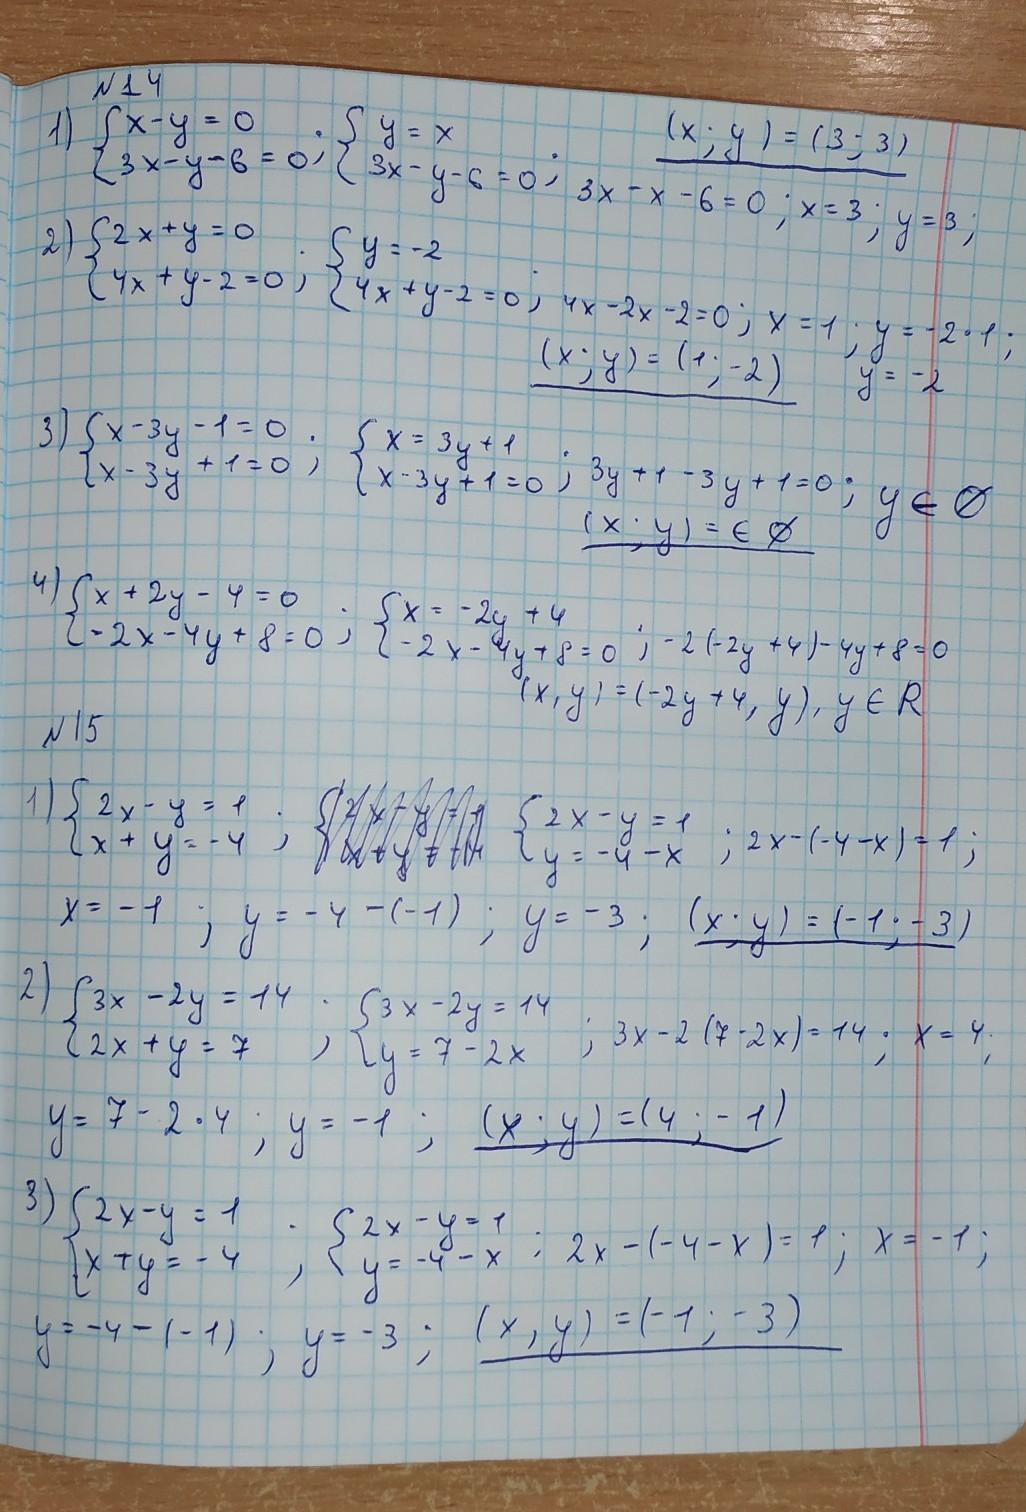 N14
1) { x-y=0 ; { y=x (x;y)=(3;3)
{ 3x-y-6=0 ; { 3x-y-6=0 ; 3x-x-6=0; x=3; y=3;
2) { 2x+y=0 ; { y=-2
{ 4x+y-2=0 ; { 4x+y-2=0 ; 4x-2x-2=0; x=1; y=-2·1;
(x;y)=(1;-2) y=-2
3) { x-3y-1=0 ; { x=3y+1
{ x-3y+1=0 ; { x-3y+1=0 ; 3y+1-3y+1=0; y∈∅
(x;y)=∈∅
4) { x+2y-4=0 ; { x=-2y+4
{ -2x-4y+8=0 ; { -2x-4y+8=0 ; -2(-2y+4)-4y+8=0
(x,y)=(-2y+4,y), y∈R
N15
1) { 2x-y=1 ; { 2x-y=1
{ x+y=-4 ; { y=-4-x ; 2x-(-4-x)=1;
x=-1; y=-4-(-1); y=-3; (x;y)=(-1;-3)
2) { 3x-2y=14 ; { 3x-2y=14
{ 2x+y=7 ; { y=7-2x ; 3x-2(7-2x)=14; x=4;
y=7-2·4; y=-1; (x;y)=(4;-1)
3) { 2x-y=1 ; { 2x-y=1
{ x+y=-4 ; { y=-4-x ; 2x-(-4-x)=1; x=-1;
y=-4-(-1); y=-3; (x,y)=(-1;-3)